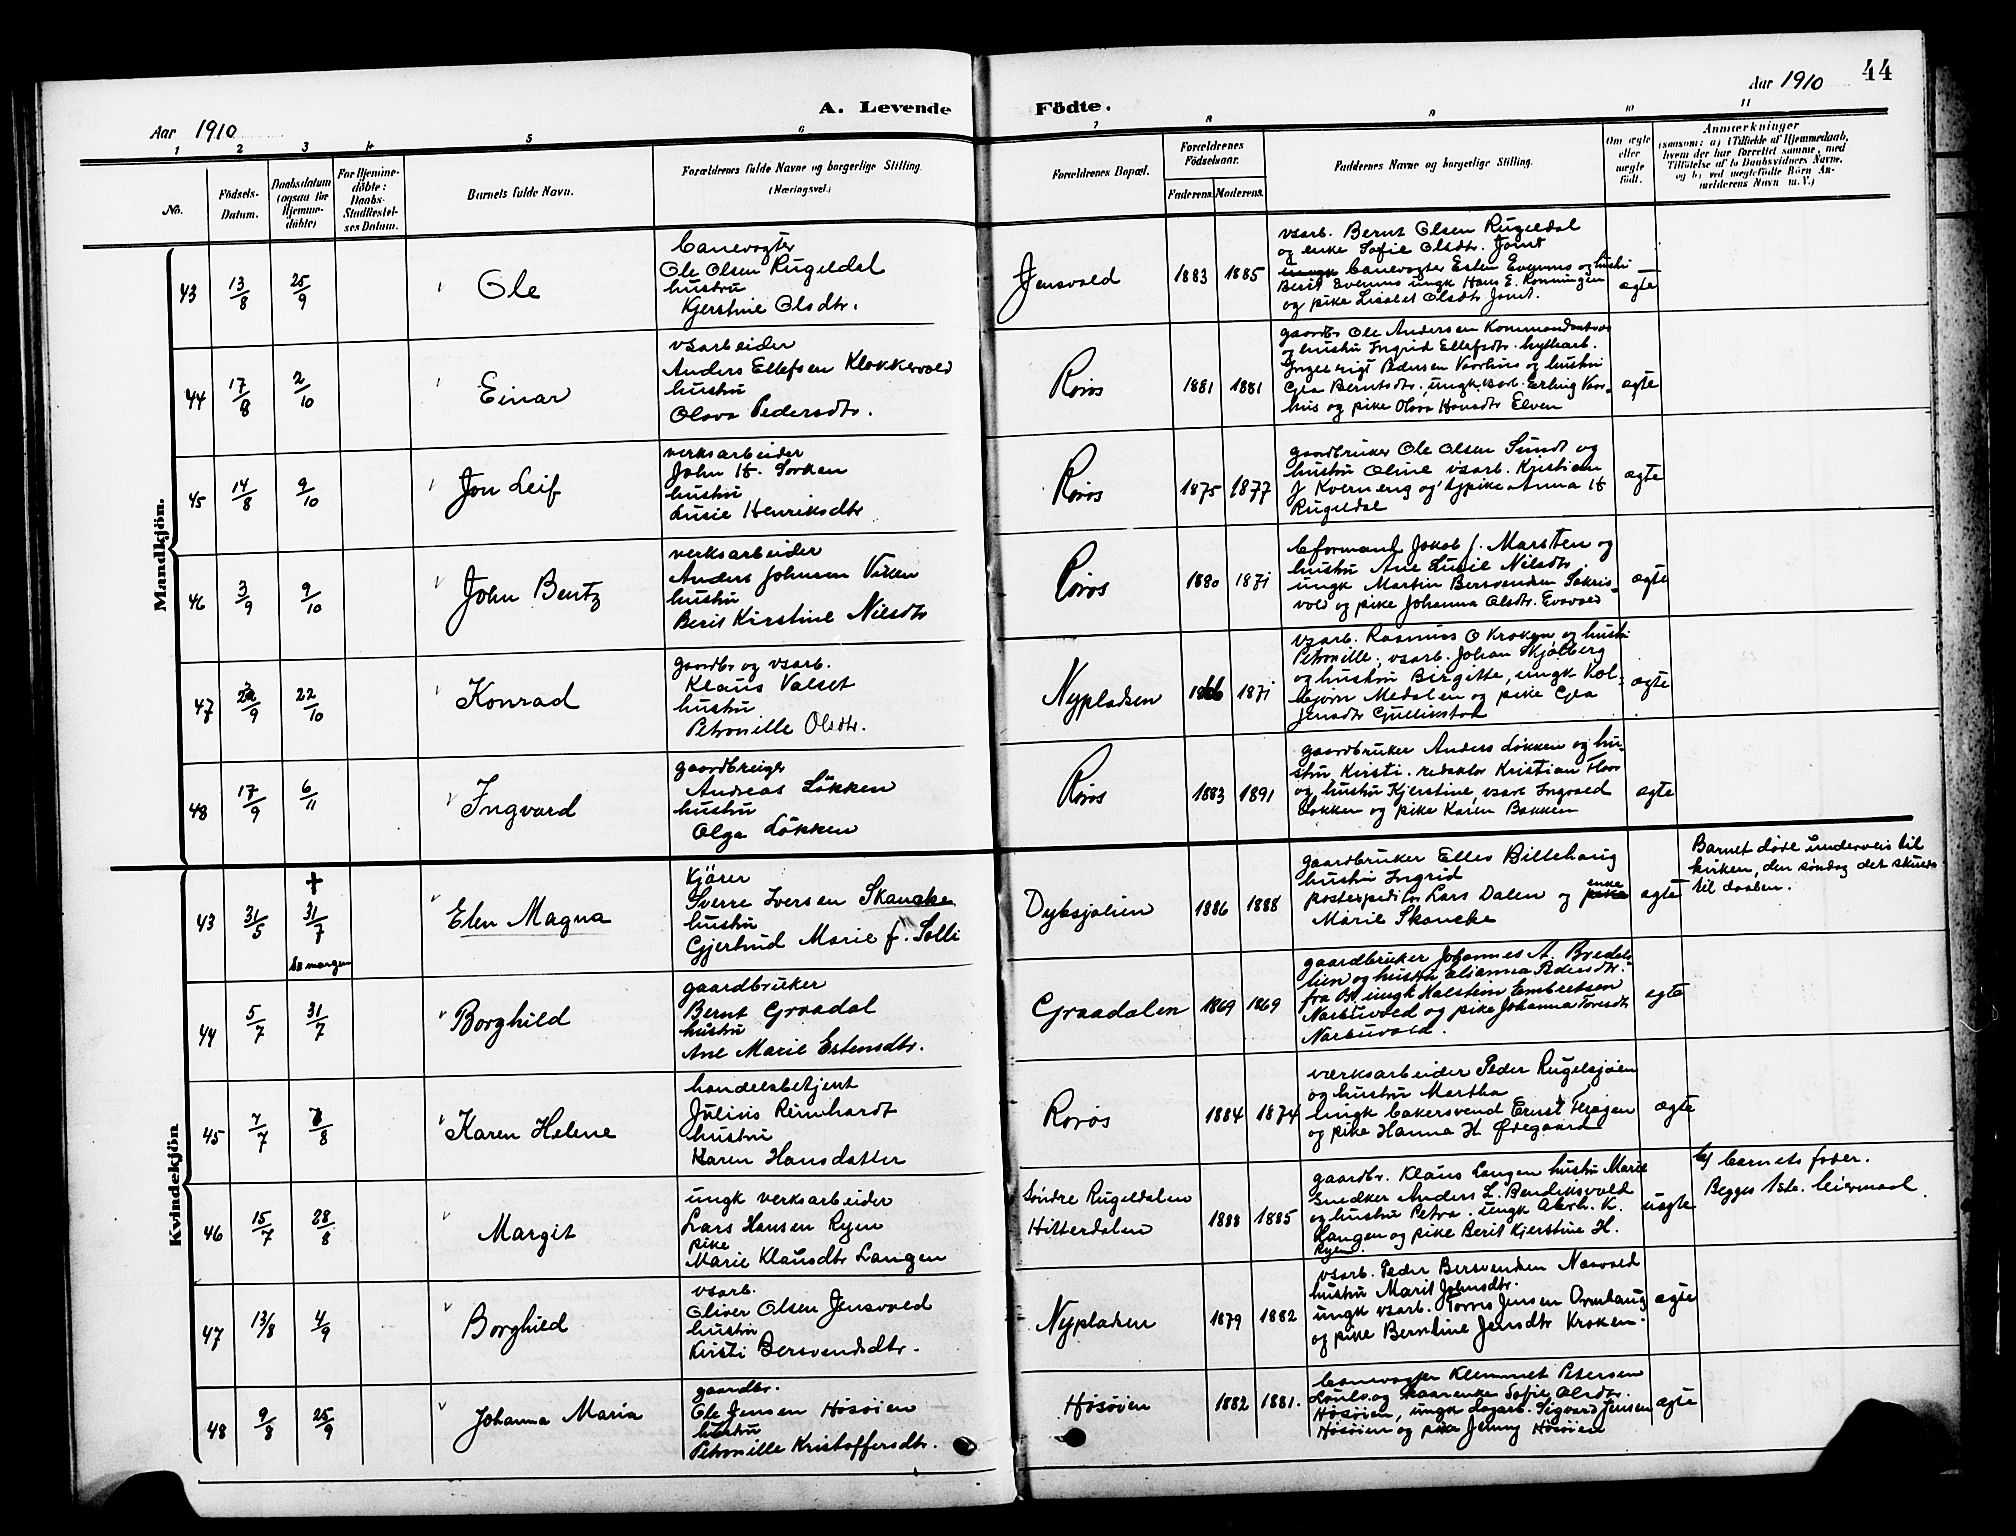 44
Aar 1910
A. Levende Födte.
Aar 1910
1 2 3 4 5 6 7 8 9 10 11
No.
Födsels-Datum.
Daabsdatum (ogsaa for Hjemmedöbte)
For Hjemmedöbte: Daabs-Stadfestelses Datum.
Barnets fulde Navn.
Forældrenes fulde Navne og borgerlige Stilling.
(Næringsvei.)
Forældrenes Bopæl.
Forældrenes Födselsaar.
Faderens. Moderens.
Faddernes Navne og borgerlige Stilling.
Om ægte eller uægte födt.
Anmærkninger
(saasom: a) i Tilfælde af Hjemmedaab, hvem der har forrettet samme, med Tilföielse af to Daabsvidners Navne, og b) ved uægtefödte Börn Anmelderens Navn m. V.)
Mandkjön.
43 13/8 25/9 Ole
banevogter
Ole Olsen Rugeldal
hustru
Kjerstine Olsdtr.
Jensvold 1883 1885
vsarb. Bernt Olsen Rugeldal
og enke Sofie Olsdtr. Jamt
banevogter Esten Evenms og hustru
Berit Evenms ungk Hans E. Rønningen
og pike Lisbet Olsdtr Jamt.
ægte
44 17/8 2/10 Einar
vsarbeider
Anders Ellefsen Klokkervold
hustru
Olava Pedersdtr.
Røros 1881 1881
gaardbr Ole Andersen Kommandantvold
og hustru Ingrid Ellefsdtr. hyttearb.
Ingebrigt Pedersen Vaarhus og hustru
Gja Berntsdtr, ungk. vsarb. Erling Vaar-
hus og pike Olava Hansdtr Elven
ægte
45 14/8 9/10 Jon Leif
verksarbeider
John H. Sorken
hustru
Lusie Henriksdtr
Røros 1875 1877
gaardbruker Ole Olsen Sundt og
hustru Oline vsarb. Kristian
J Kverneng og pike Anna H
Rugeldal
ægte
46 3/9 9/10 John Bentz
verksarbeider
Anders Johnsen Viken
hustru
Berit Kirstine Nilsdtr
Røros 1880 1871
formand Jakob J. Marsten og
hustru Ane Lusie Nilsdtr.
ungk Martin Bersvendsen Sakris-
vold og pike Johanna Olsdtr. Evavold
ægte
47 22/9 22/10 Konrad
gaardbr og vsarb.
Klaus Valset
hustru
Petronille Olsdtr.
Nypladsen 1866 1871
vsarb. Rasmus O Kroken og hustru
Petronille, vsarb. Johan Skjølberg
og hustru Birgitte, ungk Kol-
bjørn Medalen og pike Gja
Jensdtr Gullikstad
ægte
48 17/9 6/11 Ingvard
gaardbruiger
Andreas Løkken
hustru
Olga Løkken
Røros 1883 1891
gaardbruker Anders Løkken og hu-
stru Kirsti. redaktør Kristian Floor
og hustru Kjerstine, vsarb Ingvald
Løkken og pike Karen Bakken
ægte
Kvindekjön
43 31/5 + 31/7 Elen Magna
kjører
Sverre Iversen Skancke
hustru
Gjertrud Marie f. Solli
Dybsjølien 1886 1888
gaardbruker Elles Biltehaug
hustru Ingrid
postexpeditør Lars Dalen og enke
Marie Skancke
ægte
Barnet døde underveis til
kirken, den søndag det skulde
til daaben.
44 5/7 31/7 Borghild
gaardbruker
Bernt Graadal
hustru
Ane Marie Estensdtr.
Graadalen 1869 1869
gaardbruker Johannes A. Bredals-
lien og hustru Elianna Pedersdtr.
fra Os. ungk Halstein Embretsen
Narbuvold og pike Johanna Toresdtr
Narbuvold.
ægte
45 7/7 7/8 Karen Helene
handelsbetjent
Julius Reinhardt
hustru
Karen Hansdatter
Røros 1884 1874
værksarbeider Peder Rugelsjøen
og hustru Martha
ungk bakersvend Ernst Hjøgen
og pike Hanna H Ødegaard
ægte
46 15/7 28/8 Margit
ungk verksarbeider
Lars Hansen Ryen
pike
Marie Klausdtr Langen
Søndre Rugeldalen
Hitterdalen
1888 1885
gaardbr. Klaus Langen hustru Marie
Snedker Anders L. Bendiksvold
og hustru Petra. ungk Abrh. K.
Langen og pike Berit Kjerstine H.
Ryen.
uægte
b) barnets fader.
Begges 1ste leiermaal.
47 13/8 4/9 Borghild
vsarb.
Oliver Olsen Jensvold
hustru
Kirsti Bersvendsdtr.
Nypladsen 1879 1882
vsarb. Peder Bersvendsen Næsvold
hustru Marit Johnsdtr.
ungk vsarb. Torres Jensen Overhaug
og pike Berntine Jensdtr Kroken.
ægte
48 9/8 25/9 Johanna Maria
gaardbr.
Ole Jensen Høsøien
hustru
Petronille Kristoffersdtr.
Høsøien 1882 1881.
banevogter Klemmet Petersen
og enke Sofie Olsdtr.
Høsøien, ungk dagarb. Sigvard Jensen
Høsøien og pike Jenny Høsøien
ægte